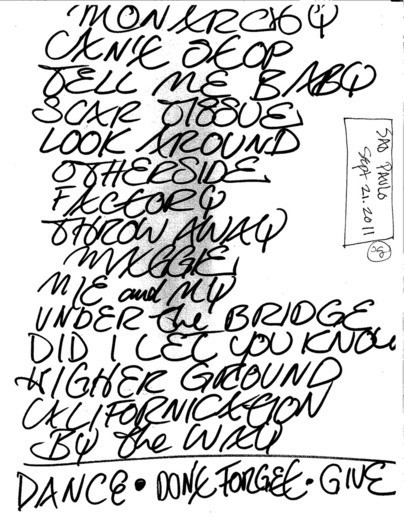 MONARCHY
CAN'T STOP
TELL ME BABY
SCAR TISSUE
LOOK AROUND
OTHERSIDE
FACTORY
THROW AWAY
MAGGIE
ME and MY
UNDER the BRIDGE
DID I LET YOU KNOW
HIGHER GROUND
CALIFORNICATION
BY the WAY
DANCE • DON'T FORGET • GIVE
SAO PAULO
SEPT 21. 2011